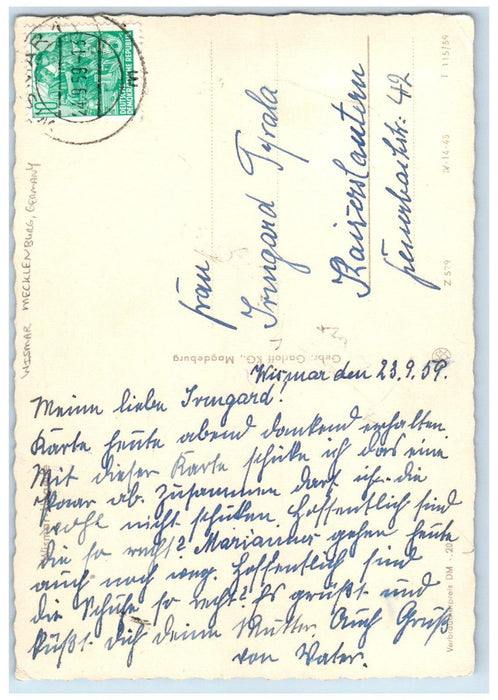 Wismar den 23.9.59.
Meine liebe Irmgard!
Karte heute abend dankend erhalten.
Mit dieser Karte schicke ich das eine
Paar ab. Zusammen darf ich die
wohl nicht schicken. Hoffentlich sind
die so recht? Marianne gehen heute
auch noch weg. Hoffentlich sind
die Schuhe so recht? Es grüßt und
küßt Dich deine Mutter. Auch Gruß
von Vater.
Frau
Irmgard Tyrala
Kaiserslautern
42
DEUTSCHE
DEMOKRATISCHE REPUBLIK
10
WISMAR MECKLENBURG, GERMANY
Gebr. Garloff KG., Magdeburg
Z 529 IV-14-45 T 115/59
Verbraucherpreis DM -.20